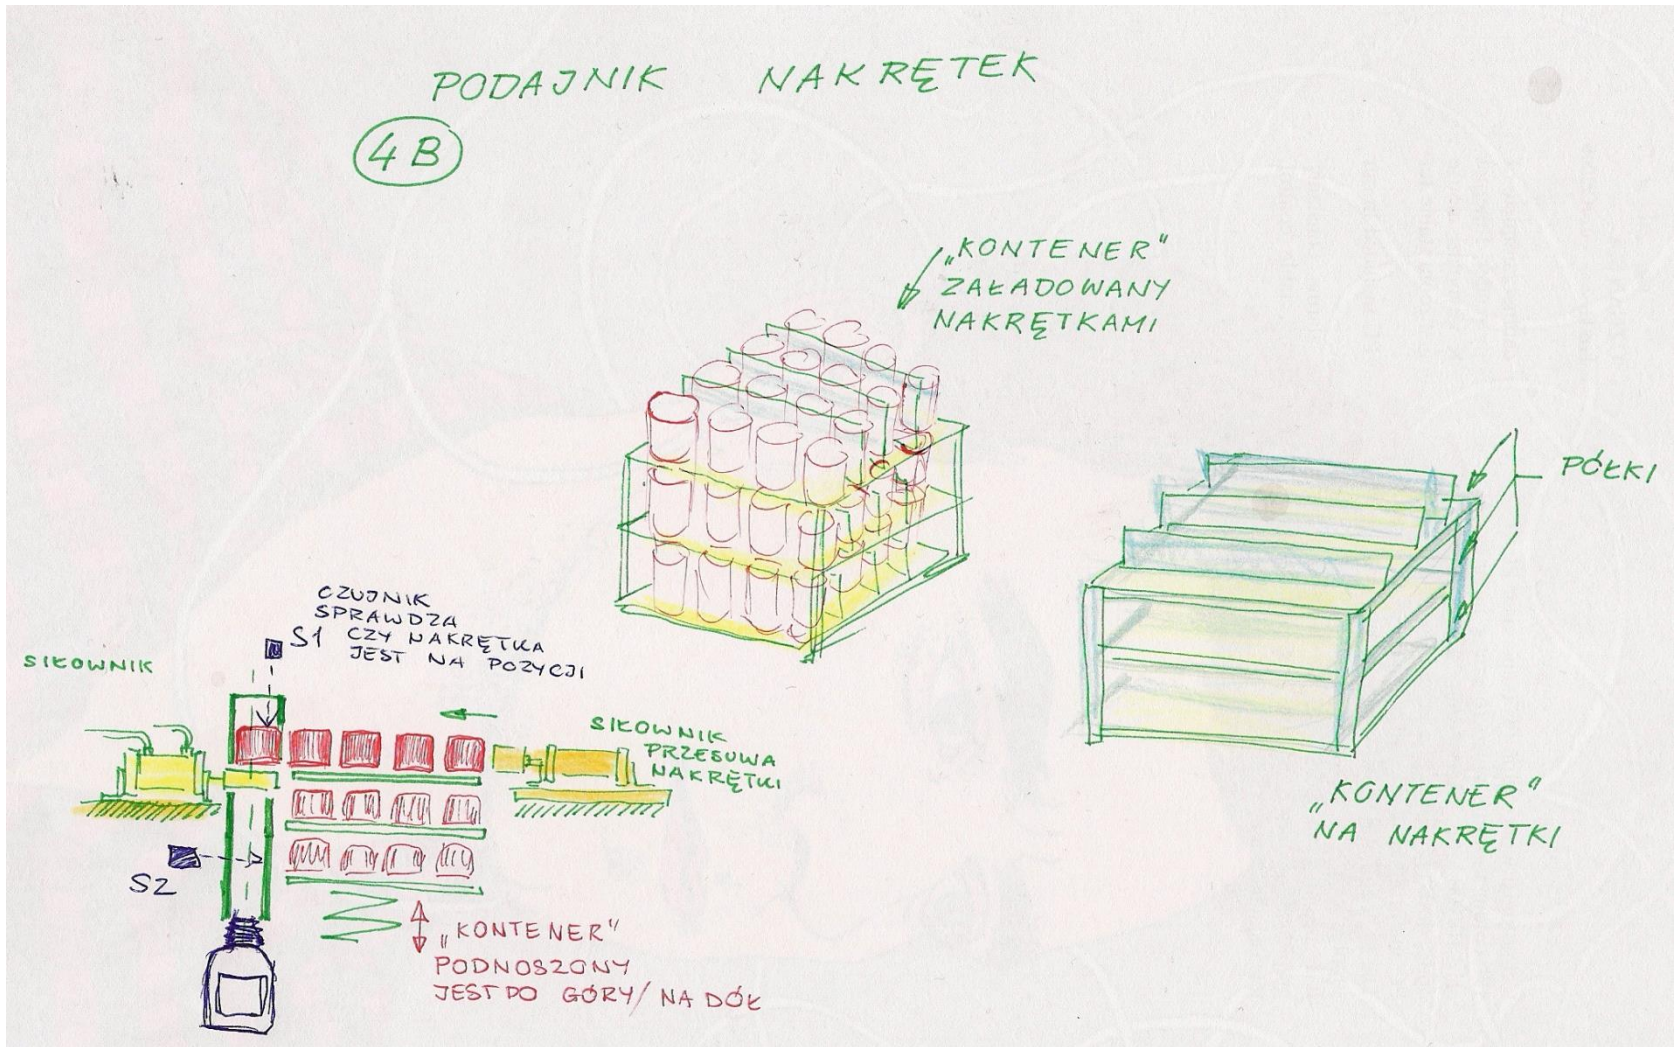 PODAJNIK NAKRĘTEK
4B
„KONTENER"
ZAŁADOWANY
NAKRĘTKAMI
PÓŁKI
„KONTENER"
NA NAKRĘTKI
CZUJNIK
SPRAWDZA
S1 CZY NAKRĘTKA
JEST NA POZYCJI
SIŁOWNIK
SIŁOWNIK
PRZESUWA
NAKRĘTKI
S2
„KONTENER"
PODNOSZONY
JEST DO GÓRY/ NA DÓŁ